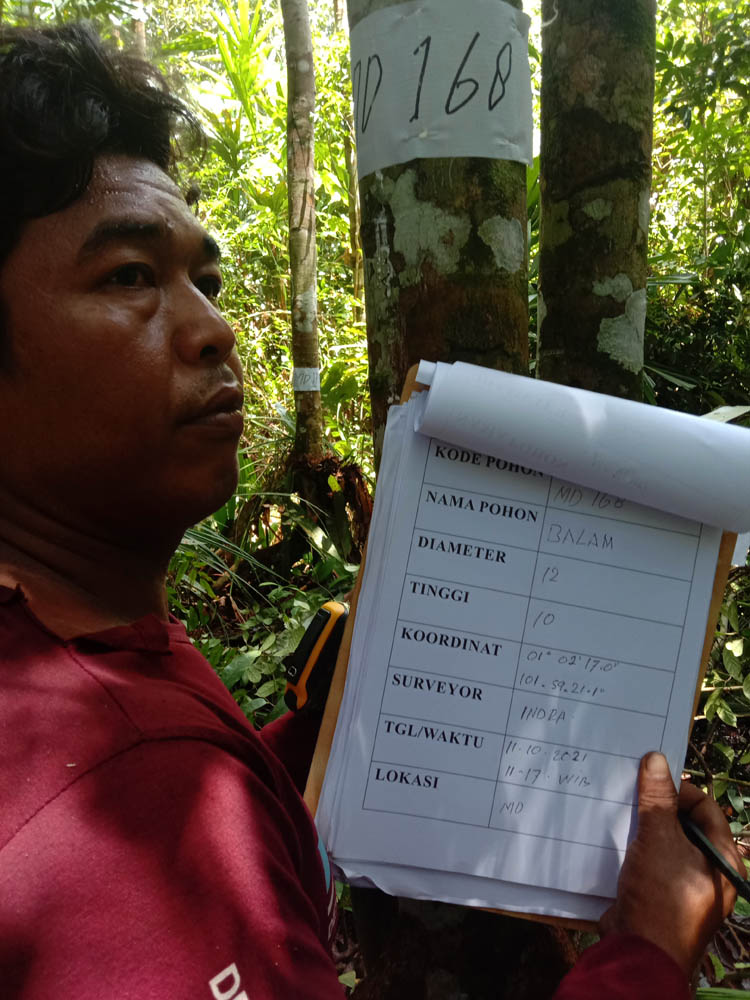 MD 168
KODE POHON MD 168
NAMA POHON BALAM
DIAMETER 12
TINGGI 10
KOORDINAT 01° 02' 17.0"
101.59.21.1"
SURVEYOR INDRA
TGL/WAKTU 11.10.2021
11.17. WIB
LOKASI MD